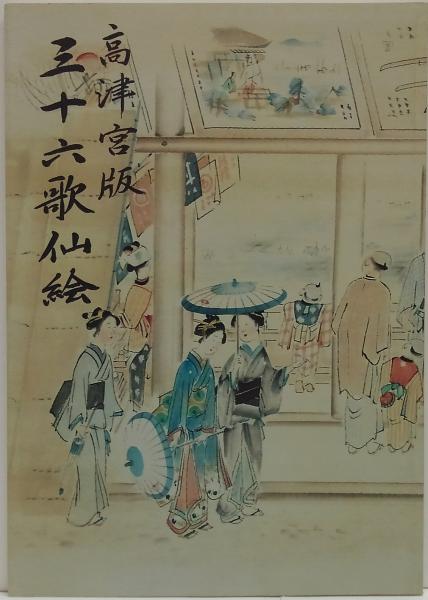 高津宮版
三十六歌仙絵